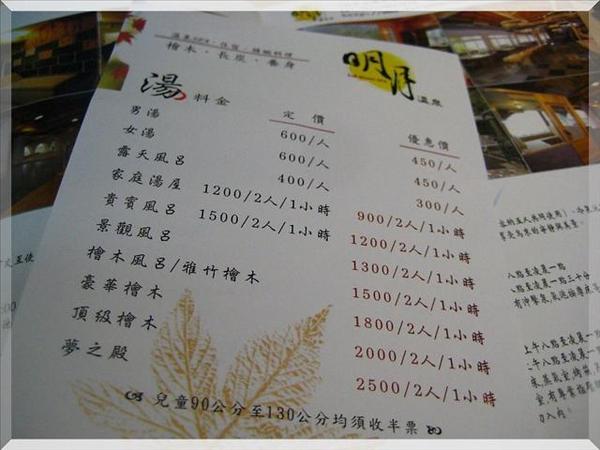 溫泉SPA・住宿・精緻料理
檜木・長炭・養身
明月
溫泉
湯料金 定價 優惠價
男湯 600/人 450/人
女湯 600/人 450/人
露天風呂 400/人 300/人
家庭湯屋 1200/2人/1小時 900/2人/1小時
貴賓風呂 1500/2人/1小時 1200/2人/1小時
景觀風呂 1300/2人/1小時
檜木風呂/雅竹檜木 1500/2人/1小時
豪華檜木 1800/2人/1小時
頂級檜木 2000/2人/1小時
夢之殿 2500/2人/1小時
兒童90公分至130公分均須收半票
八點至凌晨一點
八點至凌晨一點三十分
上午八點至凌晨一